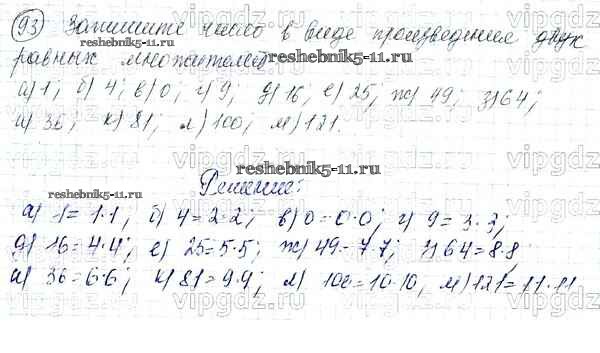 93) Запишите число в виде произведения двух
равных множителей
а) 1; б) 4; в) 0; г) 9; д) 16; е) 25; ж) 49; з) 64;
и) 36; к) 81; л) 100; м) 121.
Решение:
а) 1=1·1; б) 4=2·2; в) 0=0·0; г) 9=3·3;
д) 16=4·4; е) 25=5·5; ж) 49=7·7; з) 64=8·8
и) 36=6·6; к) 81=9·9; л) 100=10·10; м) 121=11·11
reshebnik5-11.ru
reshebnik5-11.ru
reshebnik5-11.ru
reshebnik5-11.ru
reshebnik5-11.ru
vipgdz.ru